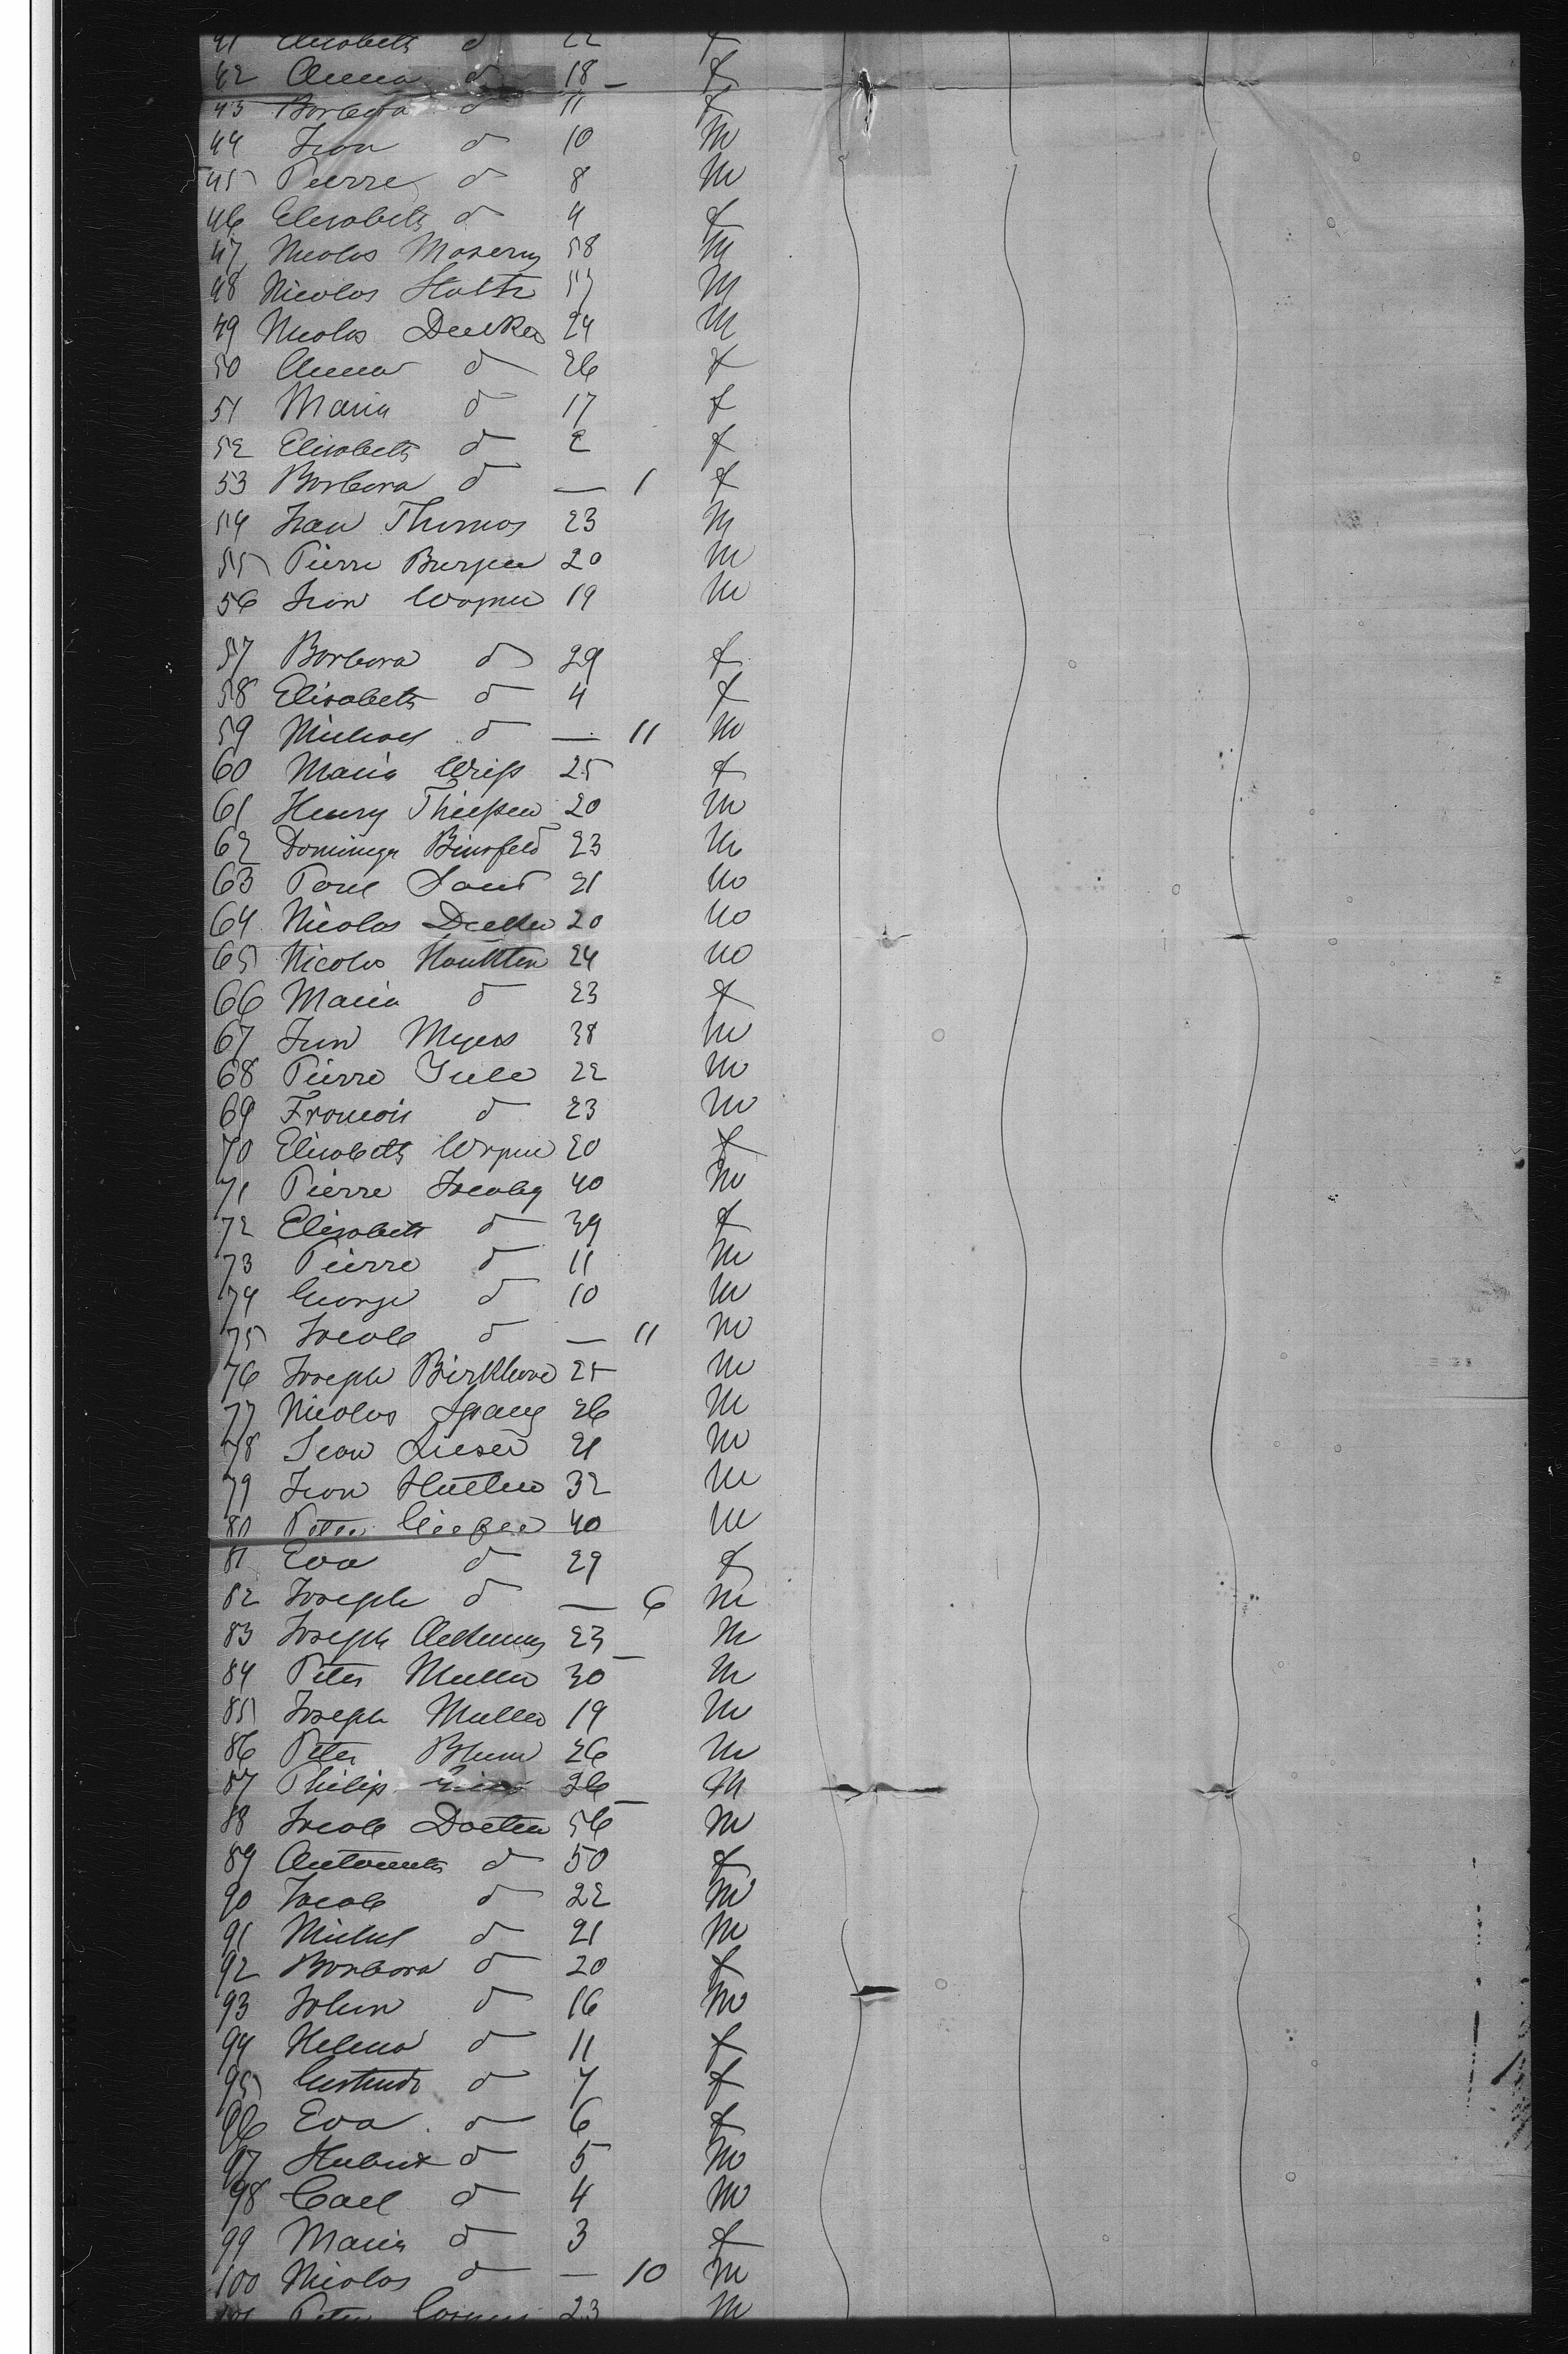 41 Elisabeth d 22 f
42 Anna d 18 f
43 Barbara d 11 f
44 Jean d 10 m
45 Pierre d 8 m
46 Elisabeth d 4 f
47 Nicolas 58 m
48 Nicolas 57 m
49 Nicolas Decker 24 m
50 Anna d 26 f
51 Maria d 17 f
52 Elisabeth d 2 f
53 Barbara d — 1 f
54 Jean Thomas 23 m
55 Pierre 20 m
56 Jean Wagner 19 m
57 Barbara d 29 f
58 Elisabeth d 4 f
59 Michael d — 11 m
60 Maria Weiss 25 f
61 Henry Thiessen 20 m
62 Binsfeld 23 m
63 Paul 21 m
64 Nicolas Decker 20 m
65 Nicolas 24 m
66 Maria d 23 f
67 Jean Myers 38 m
68 Pierre 22 m
69 Francois d 23 m
70 Elisabeth Wagner 20 f
71 Pierre Jacoby 40 m
72 Elisabeth d 39 f
73 Pierre d 11 m
74 George d 10 m
75 Jacob d — 11 m
76 Joseph 25 m
77 Nicolas Spang 26 m
78 Jean Lieser 21 m
79 Jean 32 m
80 Peter 40 m
81 Eva d 29 f
82 Joseph d — 6 m
83 Joseph 23 m
84 Peter Muller 30 m
85 Joseph Muller 19 m
86 Peter Blum 26 m
87 Philip 26 m
88 Jacob 56 m
89 d 50 f
90 Jacob d 22 m
91 Michel d 21 m
92 Barbara d 20 f
93 John d 16 m
94 Helena d 11 f
95 Gertrude d 7 f
96 Eva d 6 f
97 Hubert d 5 m
98 Carl d 4 m
99 Maria d 3 f
100 Nicolas d — 10 m
101 Peter 23 m